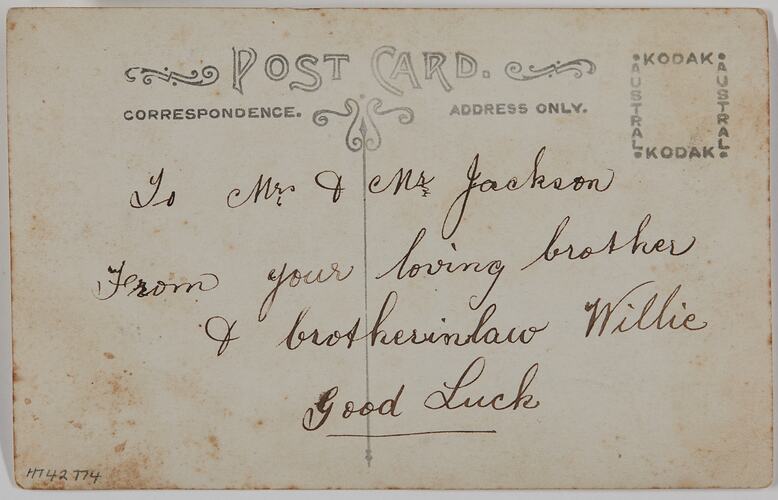 POST CARD.
CORRESPONDENCE. ADDRESS ONLY.
KODAK
AUSTRAL
AUSTRAL
KODAK
To Mrs & Mr Jackson
From your loving brother
& brotherinlaw Willie
Good Luck